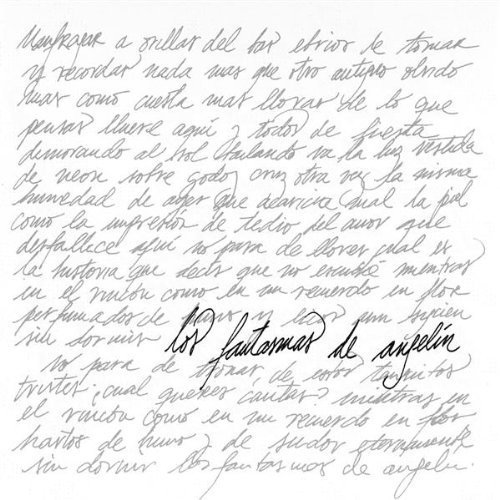 Naufragar a orillas del bar ebrios de tomar
y recordar nada mas que otro antiguo olvido
mas como cuesta mas llorar de lo que
pensar llueve aquí y todos de fiesta
demorando al sol bailando va la luz vestida
de neon sobre godoy cruz otra vez la misma
humedad de ayer que acaricia mal la piel
como la impresión de tedio del amor que
desfallece aquí no para de llover cual es
la historia que decir que no escuché mientras
en el rincón como en un recuerdo en flor
perfumados de y siguen
sin dormir
los fantasmas de angelín
no para de tronar, de esos
tristes. ¿cual querés cantar? mientras en
el rincón como en un recuerdo en flor
hartos de humo y de sudor eternamente
sin dormir los fantasmas de angelín.